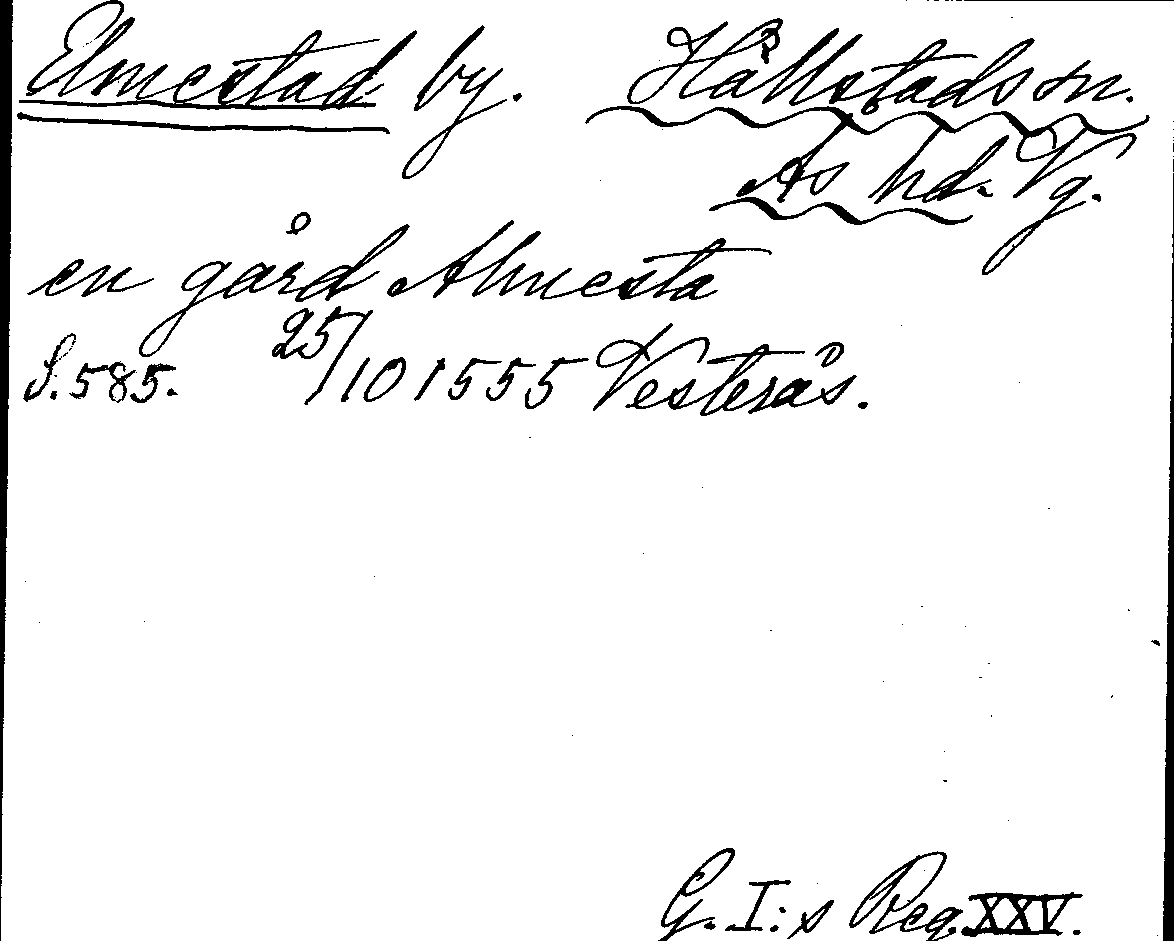 Elmestad by. Hållstads sn.
Ås hd. Vg.
en gård Almesta
S. 585. 25/10 1555 Vesterås.
G. I:s Reg. XXV.